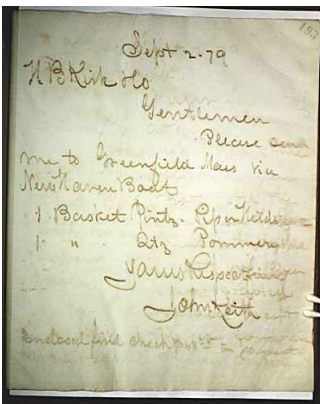 183
Sept 2-79
H B Kirk & Co
Gentlemen
Please send
me to Greenfield Mass via
New Haven Boat
1 Basket Pints
1 " Qts Pommery
Yours Respec
John Keith
Enclosed find check $48